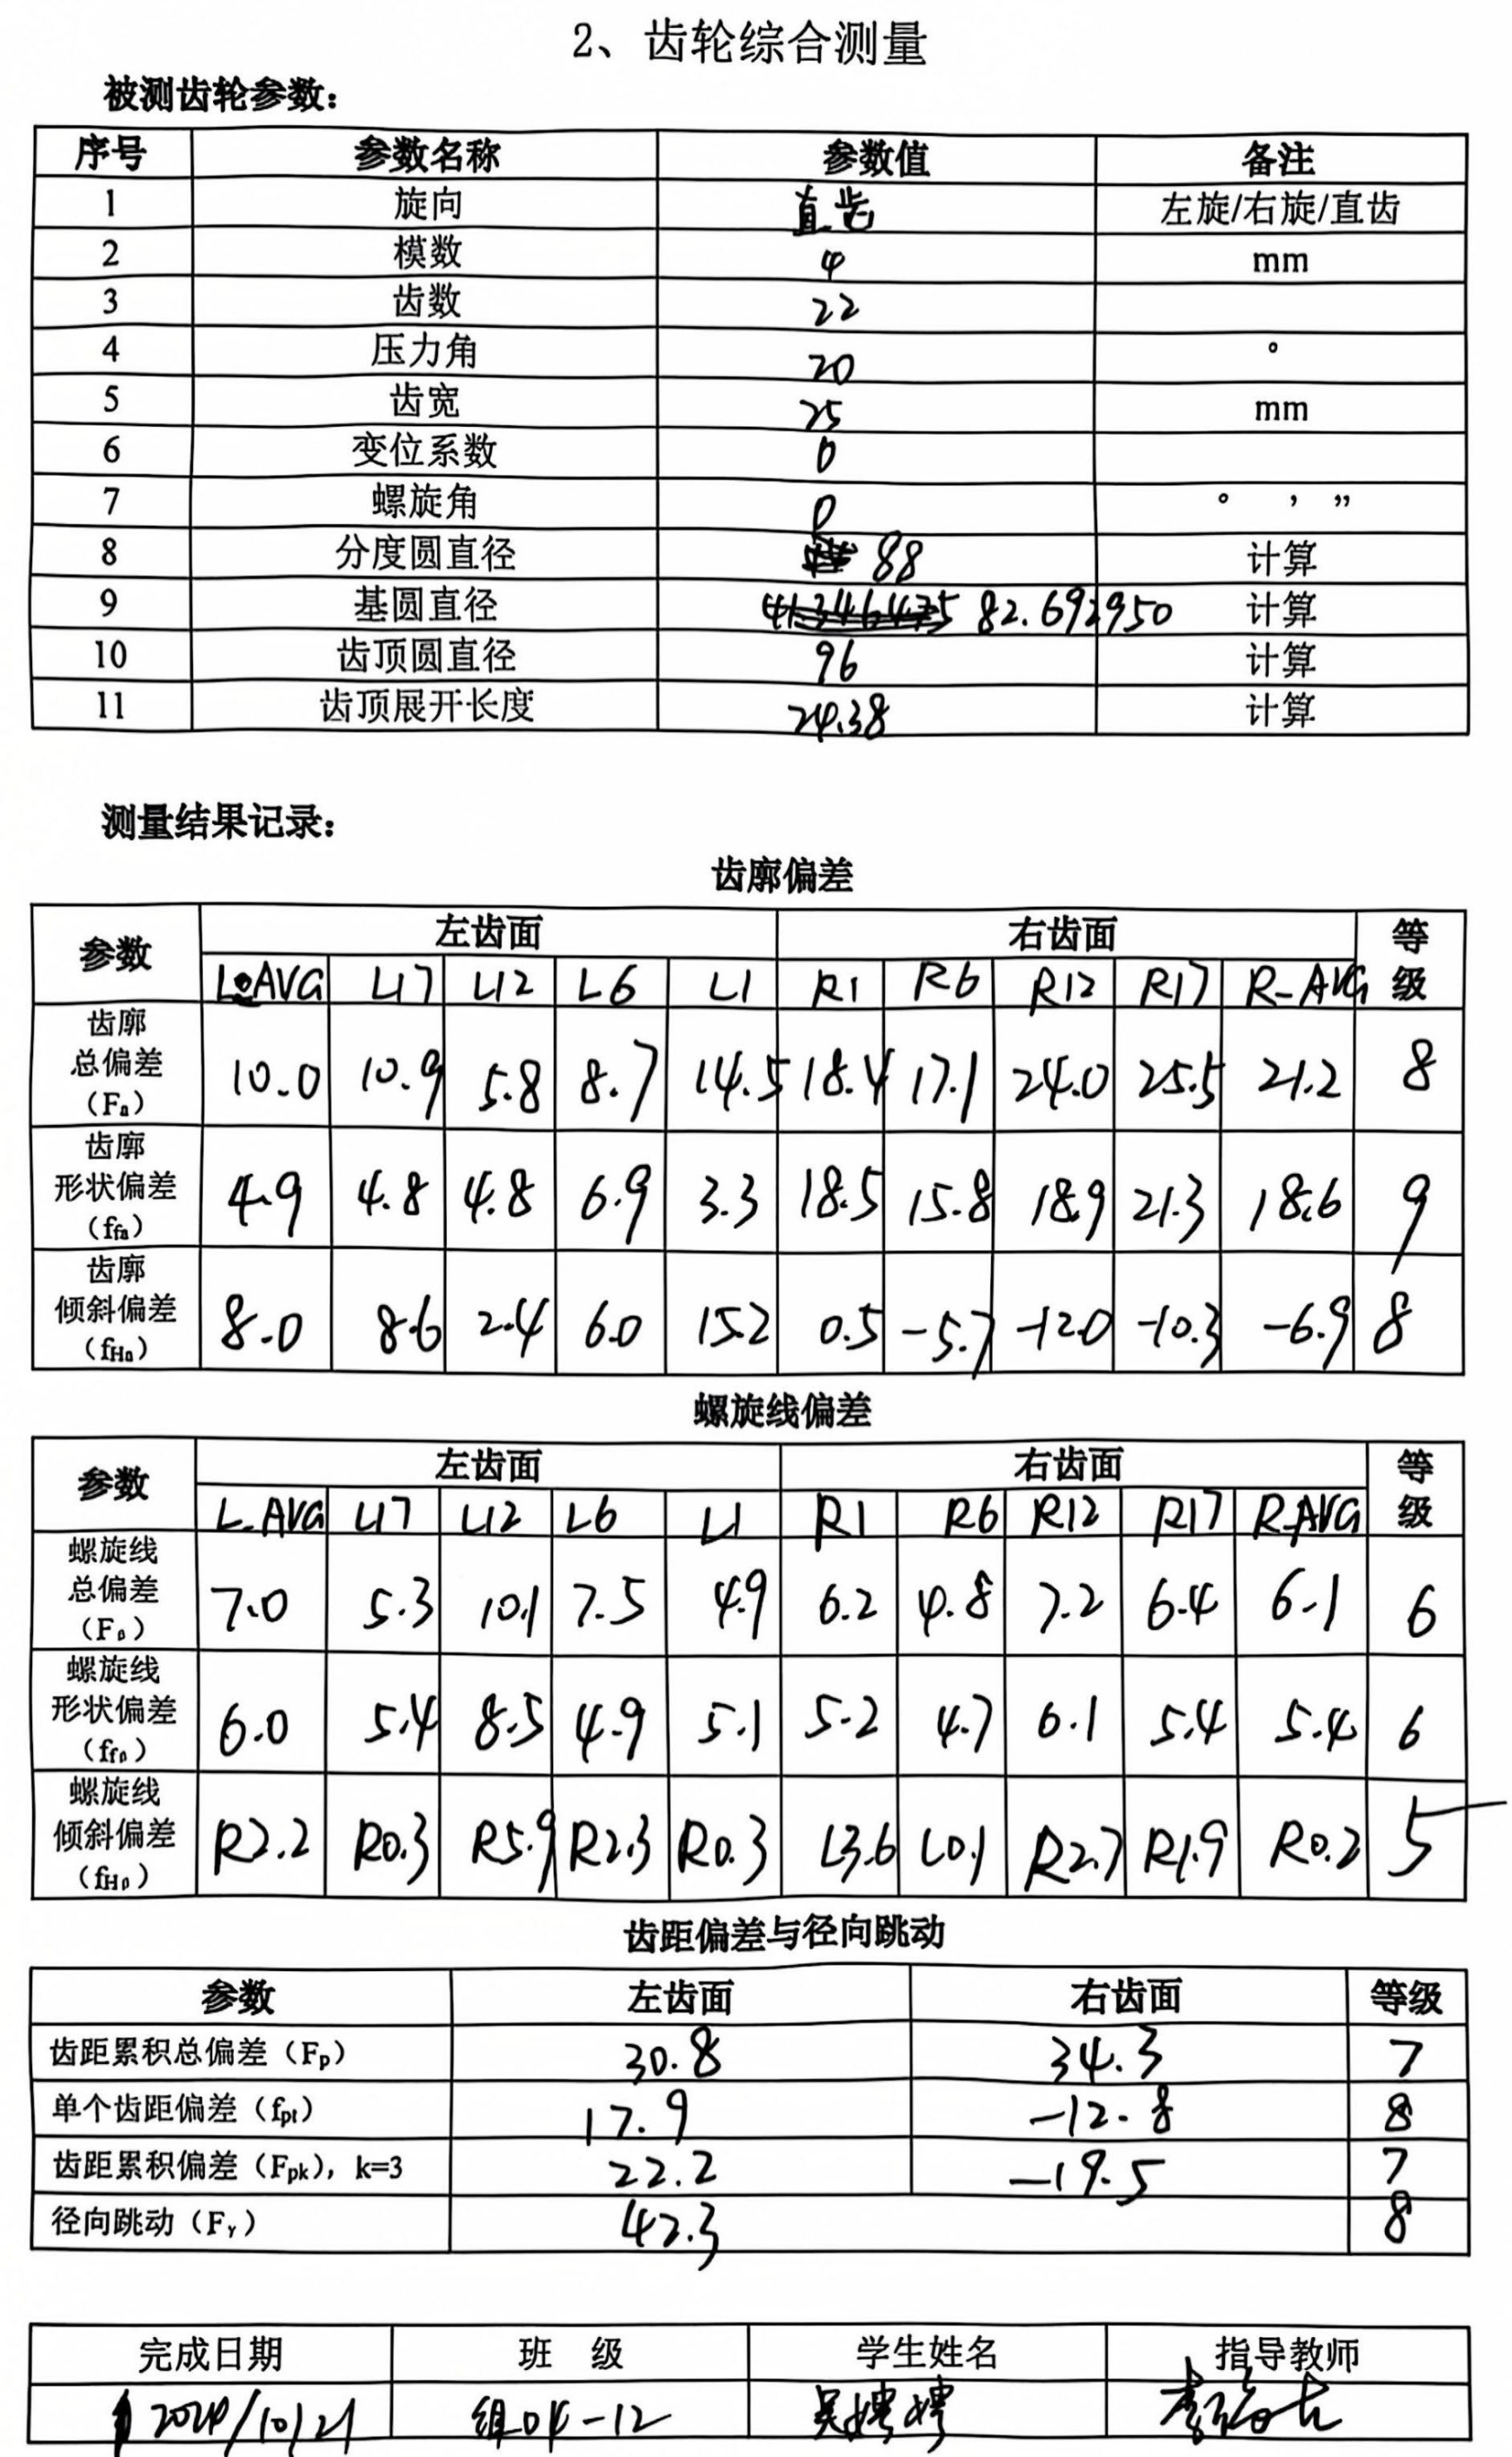 2、齿轮综合测量
被测齿轮参数：
序号 参数名称 参数值 备注
1 旋向 直齿 左旋/右旋/直齿
2 模数 4 mm
3 齿数 22
4 压力角 20 °
5 齿宽 25 mm
6 变位系数 0
7 螺旋角 0 ° ’ ”
8 分度圆直径 88 计算
9 基圆直径 82.692950 计算
10 齿顶圆直径 96 计算
11 齿顶展开长度 24.38 计算
测量结果记录：
齿廓偏差
参数 左齿面 右齿面 等级
L-AVG L17 L12 L6 L1 R1 R6 R12 R17 R-AVG
齿廓总偏差（Fa） 10.0 10.9 5.8 8.7 14.5 18.4 17.1 24.0 25.5 21.2 8
齿廓形状偏差（ffa） 4.9 4.8 4.8 6.9 3.3 18.5 15.8 18.9 21.3 18.6 9
齿廓倾斜偏差（fHa） 8.0 8.6 2.4 6.0 15.2 0.5 -5.7 -12.0 -10.3 -6.9 8
螺旋线偏差
参数 左齿面 右齿面 等级
L-AVG L17 L12 L6 L1 R1 R6 R12 R17 R-AVG
螺旋线总偏差（Fβ） 7.0 5.3 10.1 7.5 4.9 6.2 4.8 7.2 6.4 6.1 6
螺旋线形状偏差（ffβ） 6.0 5.4 8.5 4.9 5.1 5.2 4.7 6.1 5.4 5.4 6
螺旋线倾斜偏差（fHβ） R2.2 R0.3 R5.9 R2.3 R0.3 L3.6 L0.1 R2.7 R1.9 R0.2 5
齿距偏差与径向跳动
参数 左齿面 右齿面 等级
齿距累积总偏差（Fp） 30.8 34.3 7
单个齿距偏差（fpt） 17.9 -12.8 8
齿距累积偏差（Fpk），k=3 22.2 -19.5 7
径向跳动（Fγ） 42.3 8
完成日期 班 级 学生姓名 指导教师
2024/10/21 组04-12 吴娉娉